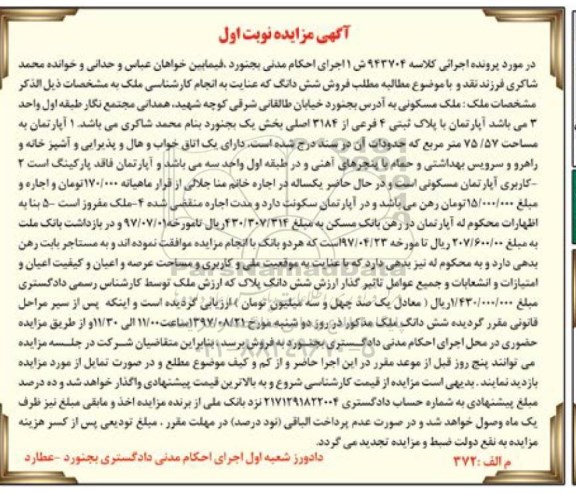 آگهی مزایده نوبت اول
در مورد پرونده اجرائی کلاسه ۹۴۳۷۰۴ ش ۱ اجرای احکام مدنی بجنورد ،فیمابین خواهان عباس و حدانی و خوانده محمد
شاکری فرزند نقد و با موضوع مطالبه مطلب فروش شش دانگ که عنایت به انجام کارشناسی ملک به مشخصات ذیل الذکر
مشخصات ملک : ملک مسکونی به آدرس بجنورد خیابان طالقانی شرقی کوچه شهید، همدانی مجتمع نگار طبقه اول واحد
۳ می باشد آپارتمان با پلاک ثبتی ۴ فرعی از ۳۱۸۴ اصلی بخش یک بجنورد بنام محمد شاکری می باشد. ۱ آپارتمان به
مساحت ۷۵/۵۷ متر مربع که حدودات آن در سند درج شده است. دارای یک اتاق خواب و هال و پذیرایی و آشپز خانه و
راهرو و سرویس بهداشتی و حمام با پنجرهای آهنی و در طبقه اول واحد سه می باشد و آپارتمان فاقد پارکینگ است ۲
-کاربری آپارتمان مسکونی است و در حال حاضر یکساله در اجاره خانم منا جلالی از قرار ماهیانه ۱۷۰/۰۰۰تومان و اجاره و
مبلغ ۱۵/۰۰۰/۰۰۰تومان رهن می باشد و در آپارتمان سکونت دارد و مدت اجاره منقضی شده ۴-ملک مفروز است -۵ بنا به
اظهارات محکوم له آپارتمان در رهن بانک مسکن به مبلغ ۴۳۰/۳۰۷/۳۱۴ریال تامورخه ۹۷/۰۷/۰۱ و در بازداشت بانک ملت
به مبلغ ۲۰۷/۶۰۰/۰۰ ریال تا مورخه ۹۷/۰۴/۲۳است که هردو بانک با انجام مزایده موافقت نموده اند و به مستاجر بابت رهن
بدهی دارد و به محکوم له نیز بدهی دارد که با عنایت به موقعیت ملی و کاربری و مساحت عرصه و اعیان و کیفیت اعیان و
امتیازات و انشعابات و جمیع عوامل تاثیر گذار ارزش شش دانگ پلاک که ارزش ملک توسط کارشناس رسمی دادگستری
مبلغ ۱/۴۳۰/۰۰۰/۰۰۰ریال ( معادل یک صد چهل و سه میلیون تومان ) ارزیابی گردیده است و اینکه پس از سیر مراحل
قانونی مقرر گردیده شش دانگ ملک مذکور در روز دو شنبه مورخ ۱۳۹۷/۰۸/۲۱ساعت۱۱/۰۰ الی ۱۱/۳۰و از طریق مزایده
حضوری در محل اجرای احکام مدنی دادگستری بجنورد به فروش برسد ، بنابراین متقاضیان شرکت در جلسه مزایده
می توانند پنج روز قبل از موعد مقرر در این اجرا حاضر و از کم و کیف موضوع مطلع و در صورت تمایل از مورد مزایده
بازدید نمایند . بدیهی است مزایده از قیمت کارشناسی شروع و به بالاترین قیمت پیشنهادی واگذار خواهد شد و ده درصد
مبلغ پیشنهادی به شماره حساب دادگستری ۲۱۷۱۲۹۱۸۲۲۰۰۴ نزد بانک ملی از برنده مزایده اخذ و مابقی مبلغ نیز ظرف
یک ماه وصول خواهد شد و در صورت عدم پرداخت الباقی (نود درصد) در مهلت مقرر ، مبلغ تودیعی پس از کسر هزینه
مزایده به نفع دولت ضبط و مزایده تجدید می گردد.
دادورز شعبه اول اجرای احکام مدنی دادگستری بجنورد -عطارد
م الف :۳۷۲
ParsNamadData
۰۲۱-۸۸۳۴۹۶۷۰-۵